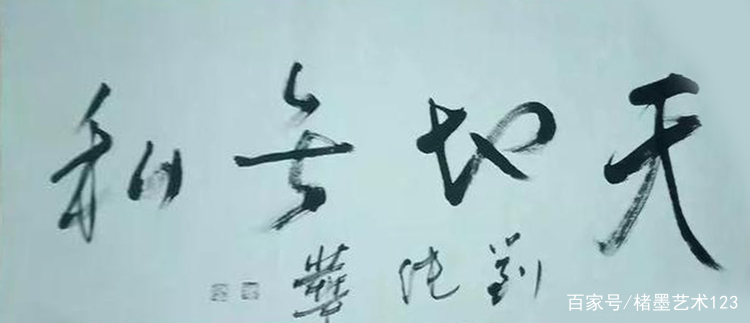 天地無私
劉德華
百家号/楮墨艺术123